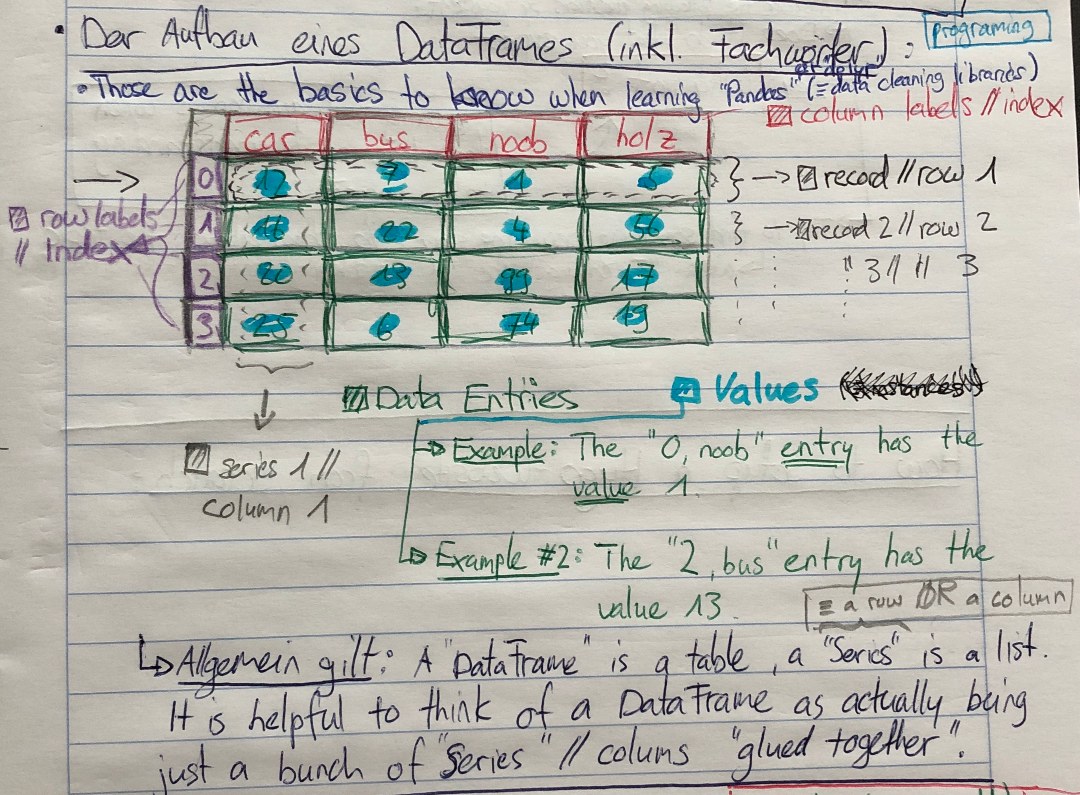 • Der Aufbau eines DataFrames (inkl. Fachwörter):
programing
• Those are the basics to know when learning "Pandas" (≡ data cleaning libraries)
column labels // index
car bus noob holz
0 12 7 1 5 } → record // row 1
row labels // Index
1 16 22 4 56 } → record 2 // row 2
2 20 13 99 17 " 3 // " 3
3 25 6 74 19
Data Entries
Values
→ Example: The "0, noob" entry has the
value 1.
series 1 //
column 1
→ Example #2: The "2, bus" entry has the
value 13.
≡ a row OR a column
→ Allgemein gilt: A "DataFrame" is a table, a "Series" is a list.
It is helpful to think of a DataFrame as actually being
just a bunch of "Series" // colums "glued together".